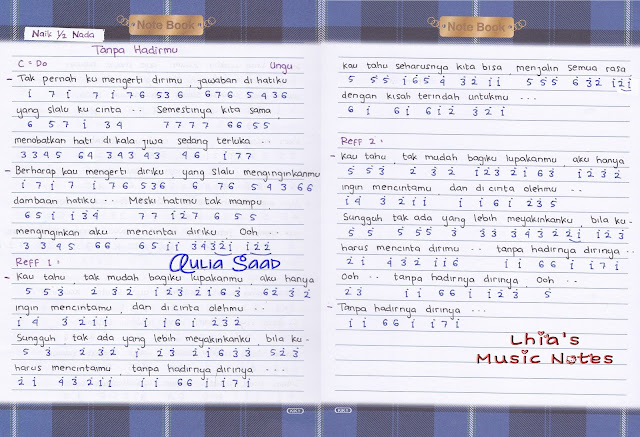 Note Book
Naik 1/2 Nada
Tanpa Hadirmu
C = Do Ungu
- Tak pernah ku mengerti dirimu, jawaban di hatiku
i 7 i 7 i 7 6 5 3 6 6 7 6 5 4 3 6
yang slalu ku cinta ·· Semestinya kita sama
6 5 7 i 3 4 7 7 7 7 6 6 5 5
menobatkan hati di kala jiwa sedang terluka ··
3 3 4 5 6 4 3 4 3 4 3 4 6 i 7 7
- Berharap kau mengerti diriku, yang slalu menginginkanmu
i 7 i 7 i 7 6 5 3 6 6 7 6 5 4 3 6 6
dambaan hatiku ·· Meski hatimu tak mampu
6 5 i i 3 4 7 7 i 2 7 6 5 5
menginginkan aku mencintai diriku Ooh ··
3 3 4 5 6 6 6 5 i i 3 4 3 2 i i 2 2
Reff 1 : Aulia Saad
- Kau tahu, tak mudah bagiku lupakanmu, aku hanya
5 5 3 2 3 2 i 2 3 2 i 6 3 6 2 3 2
ingin mencintamu, dan di cinta olehmu ··
i 4 3 2 i i i i 6 i 2 3 2
Sungguh, tak ada yang lebih meyakinkanku, bila ku-
5 3 2 3 2 i 2 3 2 i 6 3 3 5 2 3
harus mencintaimu, tanpa hadirnya dirinya ··
2 i 4 3 2 i i i i 6 6 i i 7 i
KIKY
Note Book
kau tahu seharusnya kita bisa, menjalin semua rasa
5 5 5 i 6 5 4 3 2 i i 5 5 5 6 3 2 i 2 i
dengan kisah terindah untukmu ···
6 i 6 i 6 i 2 3 2 i
Reff 2 :
- Kau tahu, tak mudah bagiku lupakanmu aku hanya
5 5 3 2 3 2 i 2 3 2 i 6 3 i 2 3 2
ingin mencintamu dan di cinta olehmu ··
i 4 3 2 i i i i 6 i 2 3 5
Sungguh tak ada yang lebih meyakinkanku, bila ku-
5 5 5 5 5 3 3 3 4 3 2 2 i i 2 3
harus mencinta dirimu ·· tanpa hadirnya dirinya ··
2 i 4 3 2 i i 6 i i 6 6 i i 7 i
Ooh ·· tanpa hadirnya dirinya, Ooh ··
2 3 i i 6 6 i i 2 3 5
- Tanpa hadirnya dirinya ···
i i 6 6 i i 7 i
Lhia's
Music Notes
KIKY